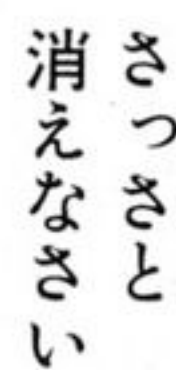 さっさと
消えなさい